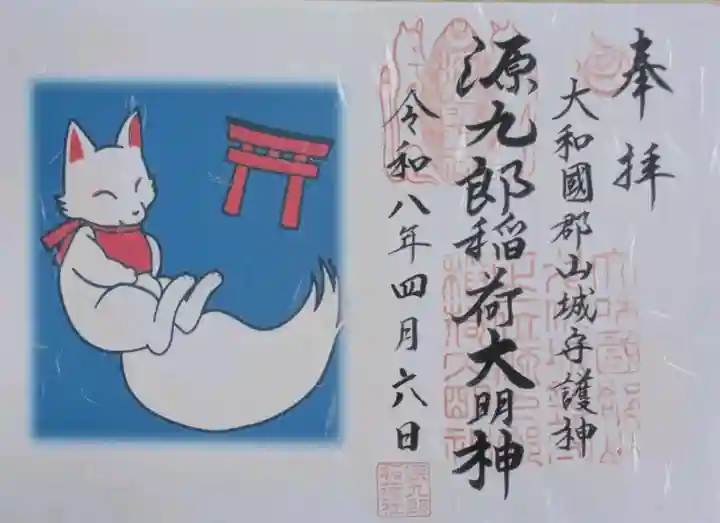 奉拝
大和國郡山城守護神
源九郎稲荷大明神
令和八年四月六日
源九郎
稲荷社